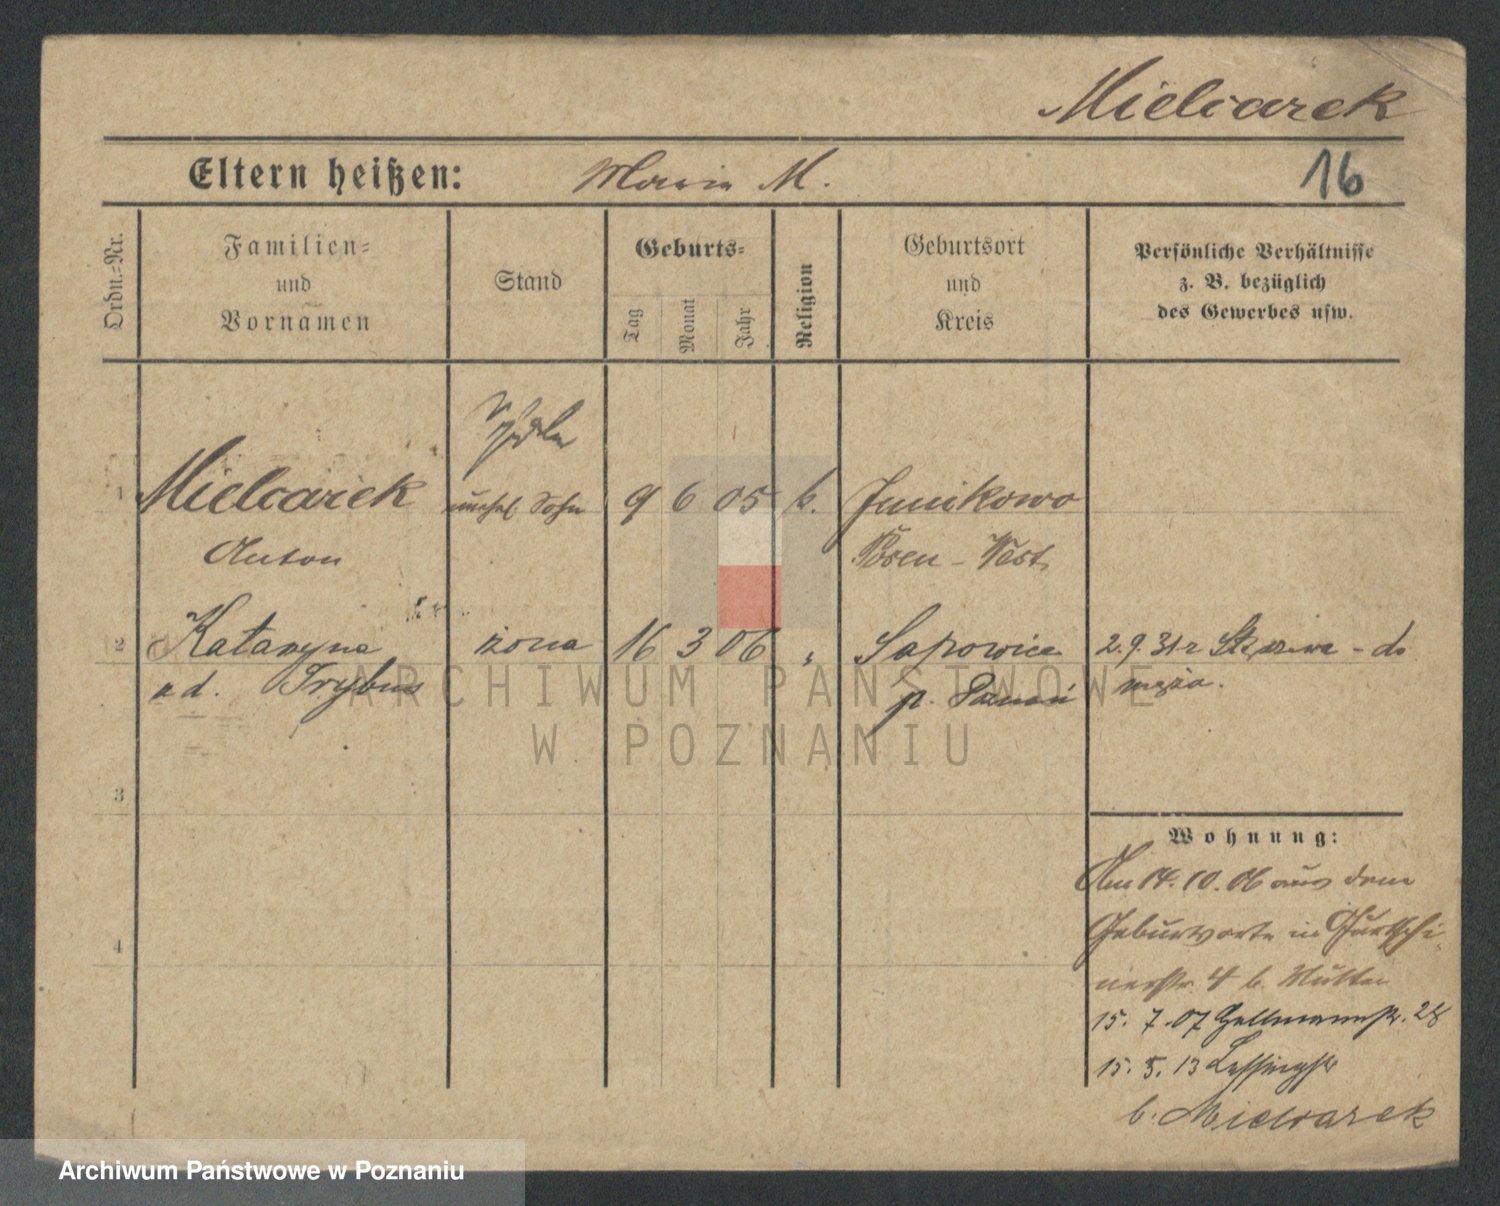 Mielcarek
Eltern heißen: Maria M. 16
Ordn.-Nr.
Familien-
und
Vornamen
Stand
Geburts-
Tag
Monat
Jahr
Religion
Geburtsort
und
Kreis
Persönliche Verhältnisse
z. B. bezüglich
des Gewerbes usw.
1 Mielcarek unehel. Sohn 9 6 05 k. Junikowo
Anton Posen-West
2 Katarzyna żona 16 3 06 " Sapowice 2.9.31 r - do
z d. Trybus p. Poznań męża.
3
4
Wohnung:
Am 14.10.06 aus dem
Geburtsorte in
4 b. Mutter
15.7.07 28
15.5.13 Lessingstr
b. Mielcarek
ARCHIWUM PAŃSTWOWE
W POZNANIU
Archiwum Państwowe w Poznaniu